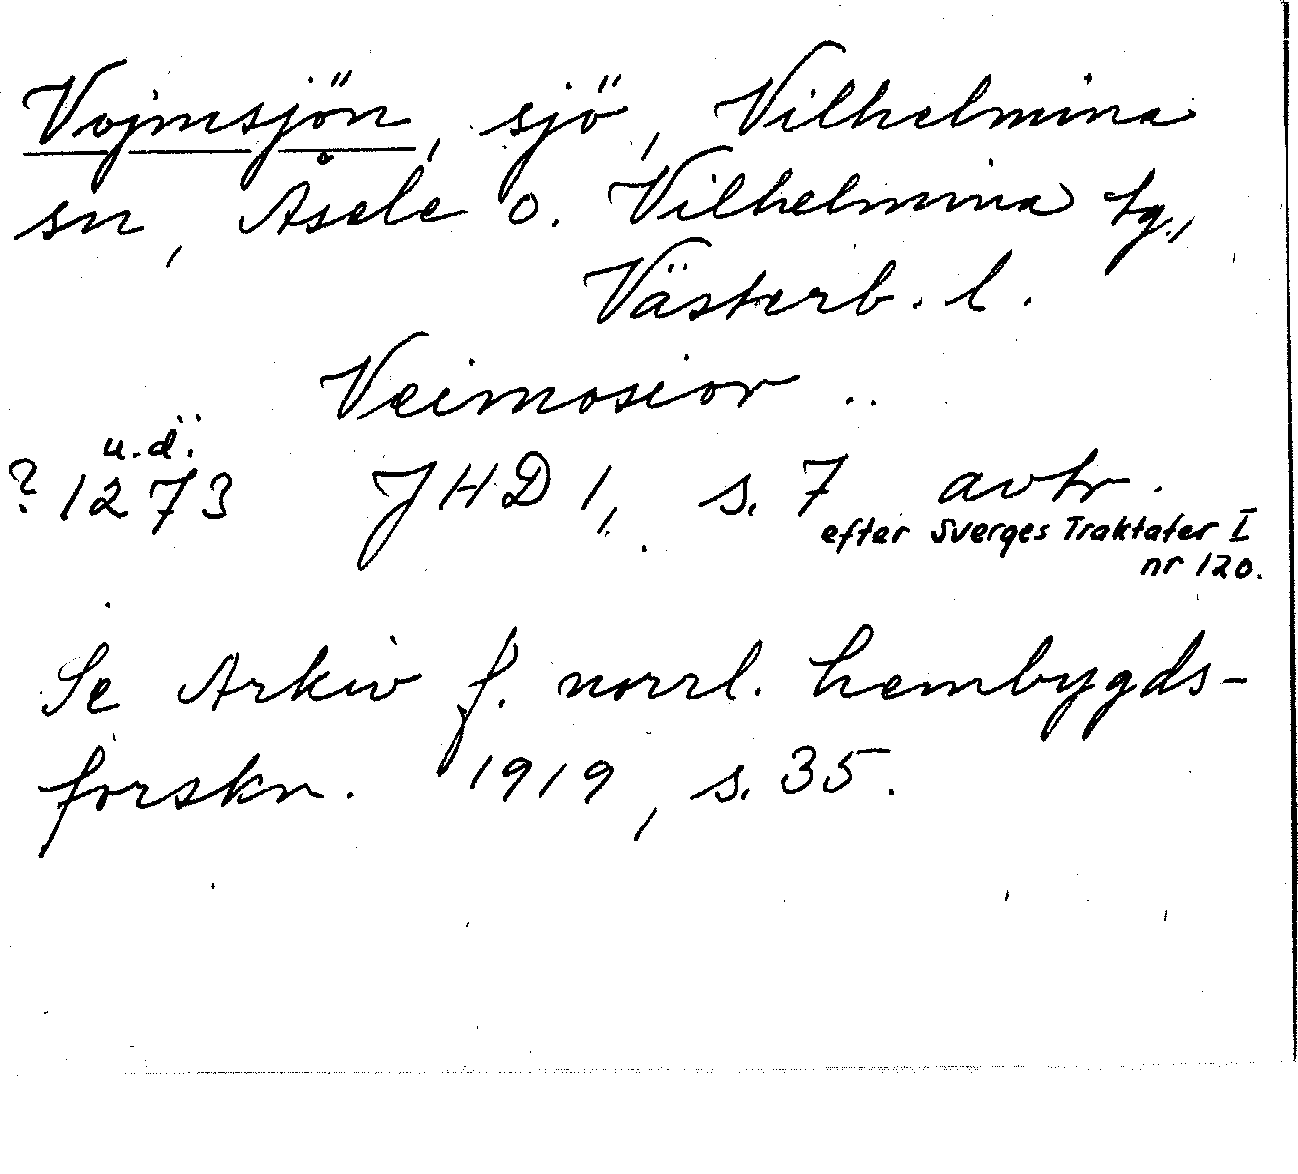 Vojmsjön, sjö, Vilhelmina
sn, Åsele o. Vilhelmina tg.,
Västerb. l.
Veimosior ..
u.d.
? 1273 JHD 1, s. 7 avtr.
efter Sverges Traktater I
nr 120.
Se Arkiv f. norrl. hembygds-
forskn. 1919, s. 35.